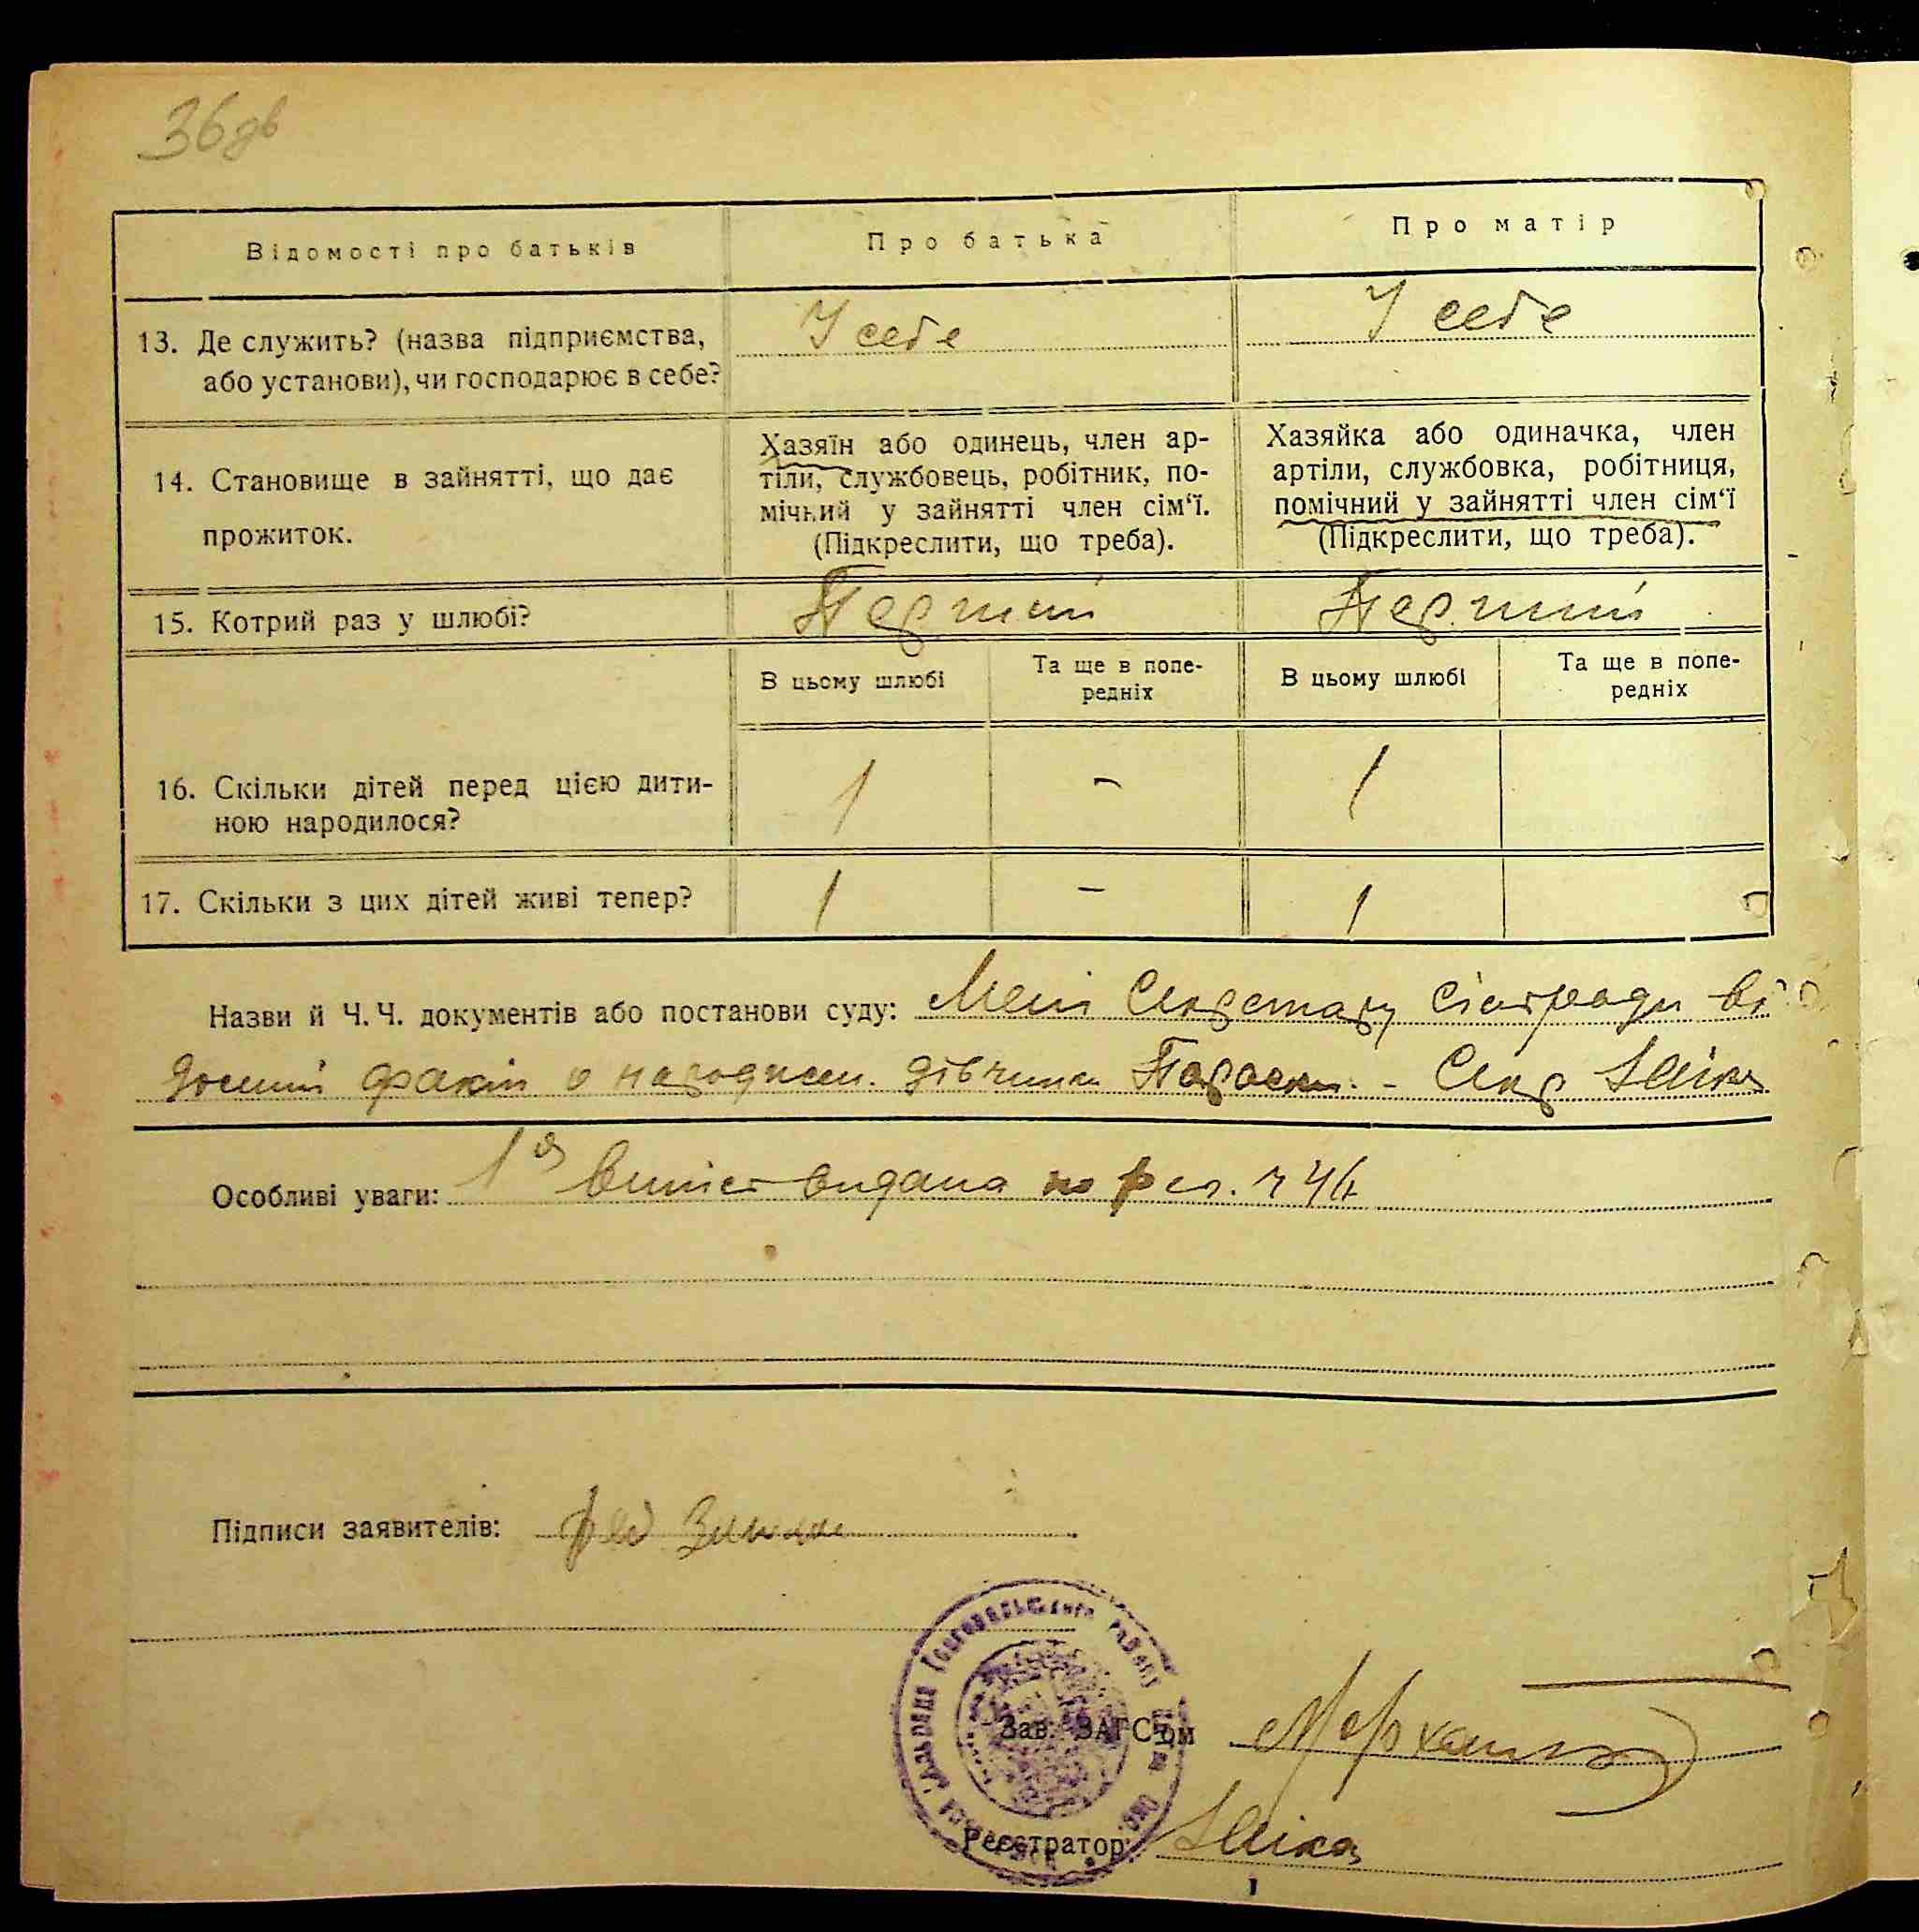 36 зв
Відомості про батьків
Про батька
Про матір
13. Де служить? (назва підприємства,
або установи), чи господарює в себе?
У себе
У себе
14. Становище в зайнятті, що дає
прожиток.
Хазяїн або одинець, член ар-
тіли, службовець, робітник, по-
мічний у зайнятті член сім‘ї.
(Підкреслити, що треба).
Хазяйка або одиначка, член
артіли, службовка, робітниця,
помічний у зайнятті член сім‘ї
(Підкреслити, що треба).
15. Котрий раз у шлюбі?
Перший
Перший
В цьому шлюбі
Та ще в попе-
редніх
В цьому шлюбі
Та ще в попе-
редніх
16. Скільки дітей перед цією дити-
ною народилося?
1
-
1
17. Скільки з цих дітей живі тепер?
1
-
1
Назви й Ч. Ч. документів або постанови суду: Мені Секретару Сільради ві
домий факт о народжен. дівчинки Параски. - Секр
Особливі уваги: 1а випись видана по рег. ч 46
Підписи заявителів:
Зав. ЗАГС‘ом
Реєстратор: